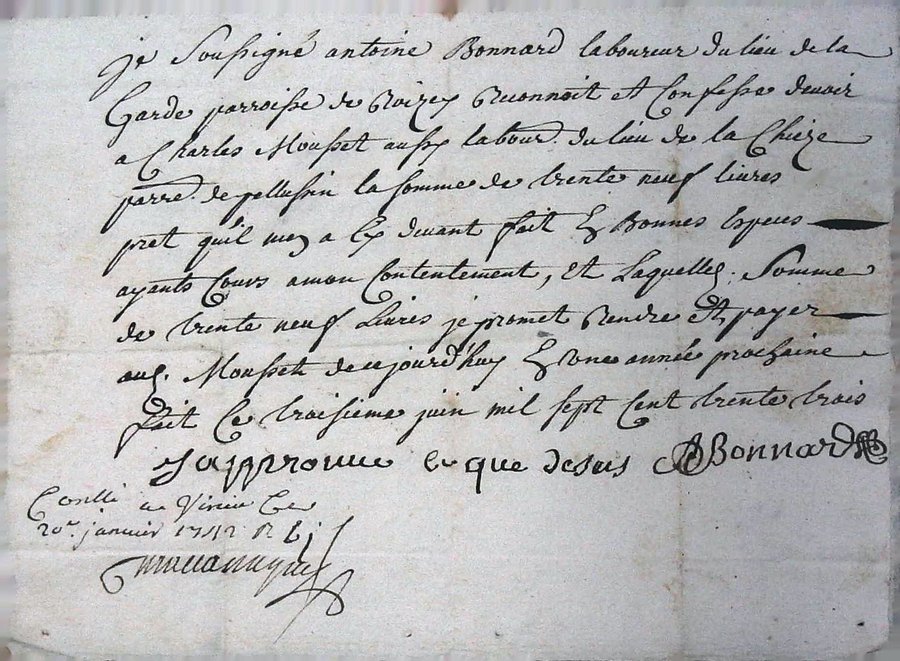 je Soussigné antoine Bonnard laboureur du lieu de la
Garde parroisse de Roizey Reconnoit et Confesse devoir
a Charles Mousset aussy labour. du lieu de la Chieze
parre. de pellussin la somme de trente neuf livres
pret qu'il m'en a Cy devant fait En Bonnes Especes
ayants Cours amon Contentement, Et Laquelle d. Somme
de trente neuf Livres je promet Rendre Et payer
aud. Mousset de ce jourd'huy En Une année prochaine
fait Ce troisieme juin mil sept Cent trente trois
Japprouve ce que desus A Bonnard
Conllé a Virieu Ce
20e. janvier 1742 R